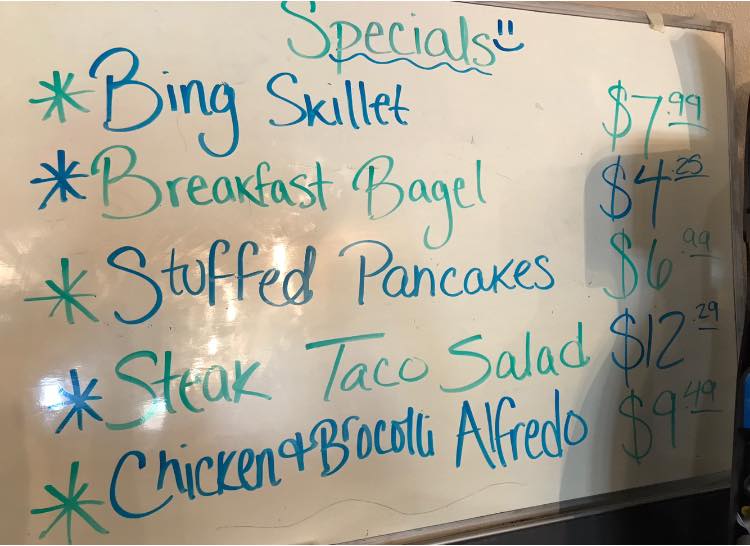 Specials
* Bing Skillet $7.99
* Breakfast Bagel $4.25
* Stuffed Pancakes $6.99
* Steak Taco Salad $12.29
* Chicken & Brocolli Alfredo $9.49